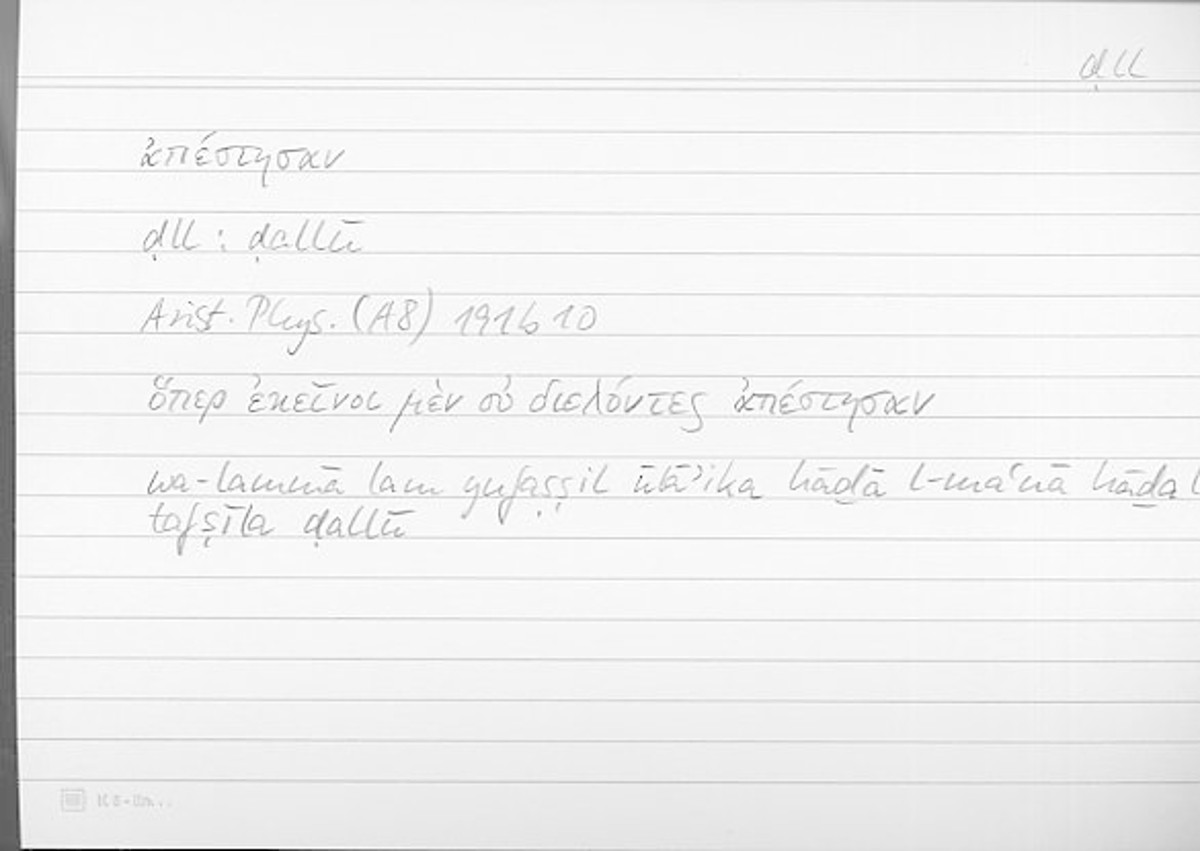 ḍll
ἀπέστησαν
ḍll : ḍallū
Arist. Phys. (A8) 191b10
ὅπερ ἐκεῖνοι μὲν οὐ διελόντες ἀπέστησαν
wa-lammā lam yufaṣṣil ūlāʾika hāḏā l-maʿnā hāḏa l
tafṣīla ḍallū